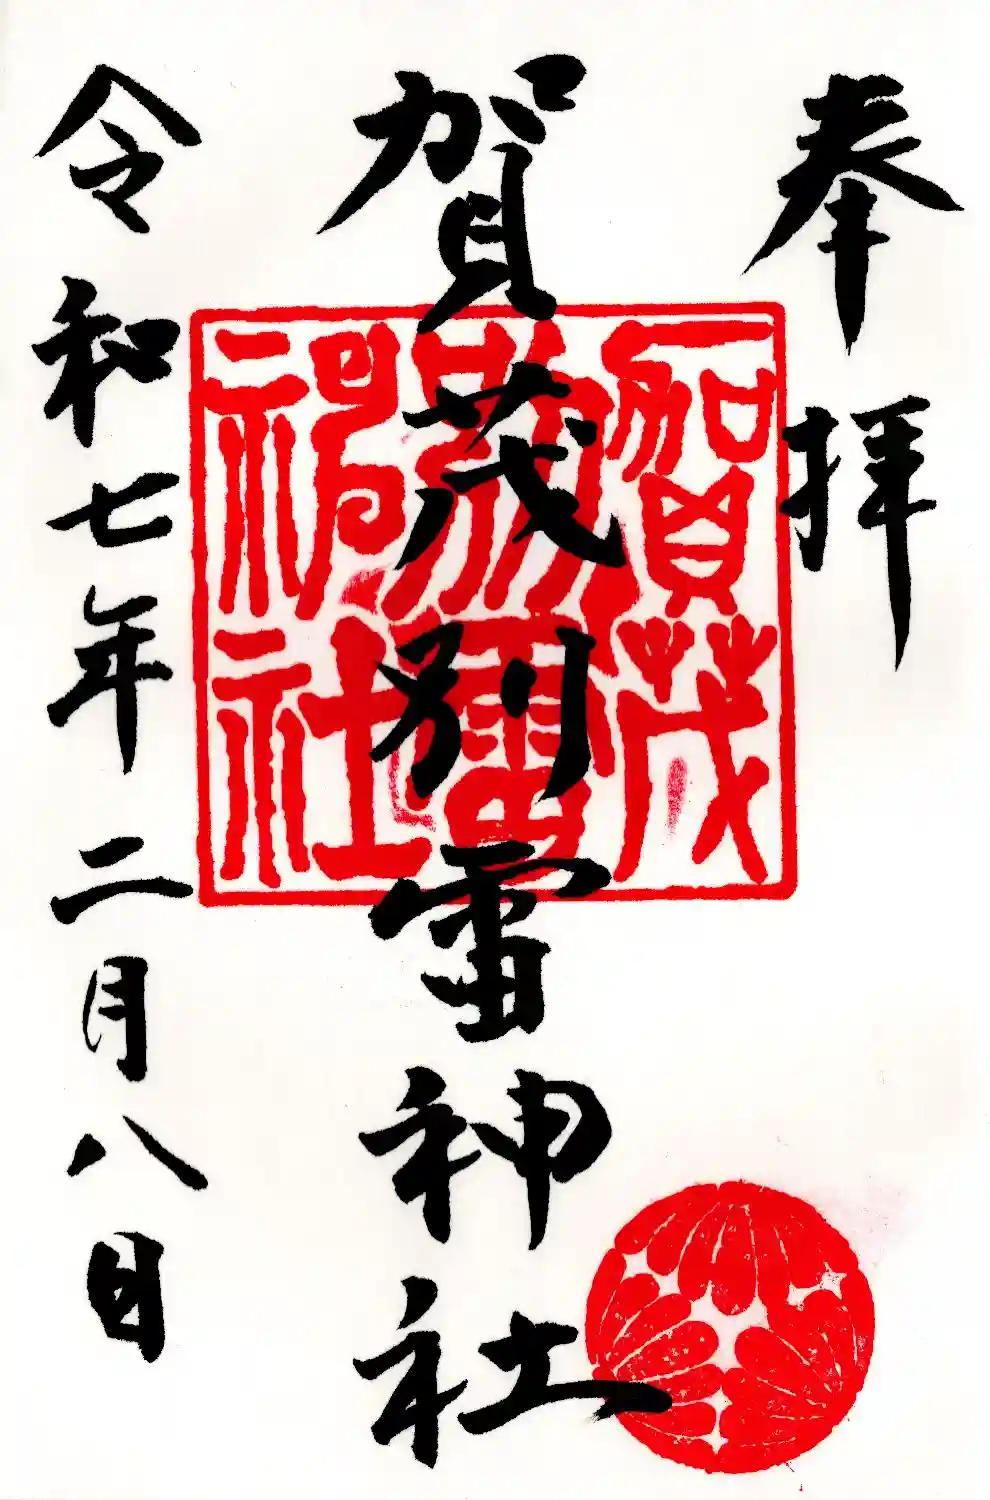 奉拝
賀茂別雷神社
賀茂
別雷
神社
令和七年二月八日